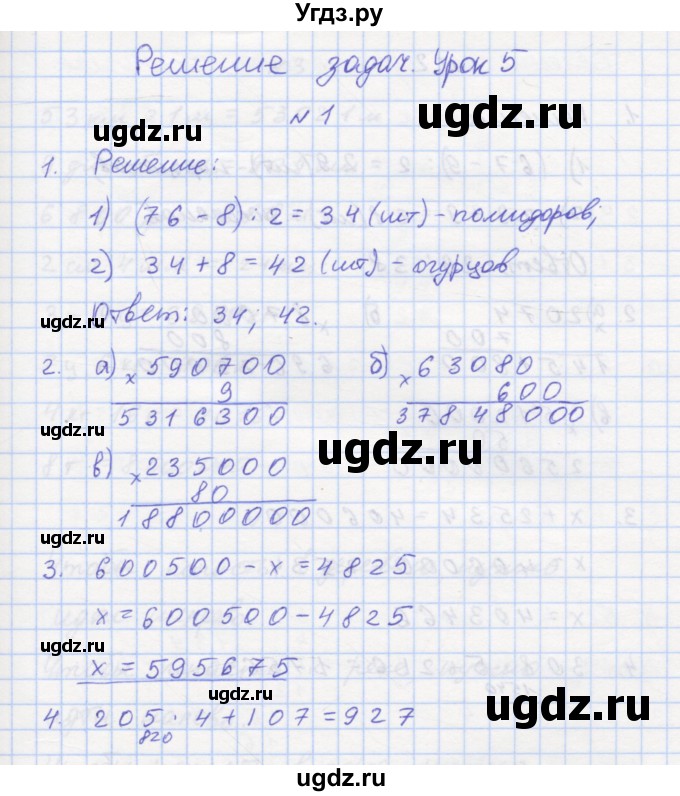 Угдз.ру
Решение задач. Урок 5
ugdz.ru ugdz.ru
N 1
1. Решение:
ugdz.ru
1) (76 - 8) : 2 = 34 (шт) - помидоров;
2) 34 + 8 = 42 (шт) - огурцов
ugdz.ru ugdz.ru
Ответ: 34; 42.
ugdz.ru
2. а) × 590700 б) × 63080
9 600
5316300 37848000
ugdz.ru
в) × 235000 ugdz.ru
80
18800000
ugdz.ru
3. 600500 - x = 4825
x = 600500 - 4825
ugdz.ru
x = 595675
ugdz.ru ugdz.ru
4. 205 · 4 + 107 = 927
820
ugdz.ru